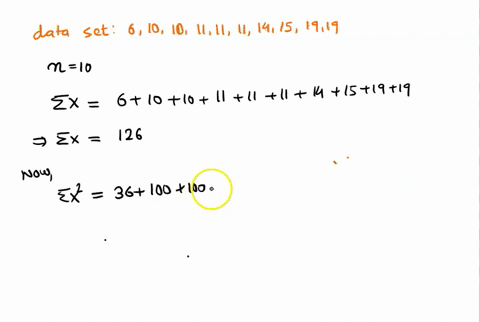 data set: 6, 10, 10, 11, 11, 11, 14, 15, 19, 19
n=10
Σx = 6+10+10+11+11+11+14+15+19+19
⇒ Σx = 126
Now,
Σx² = 36+100+100